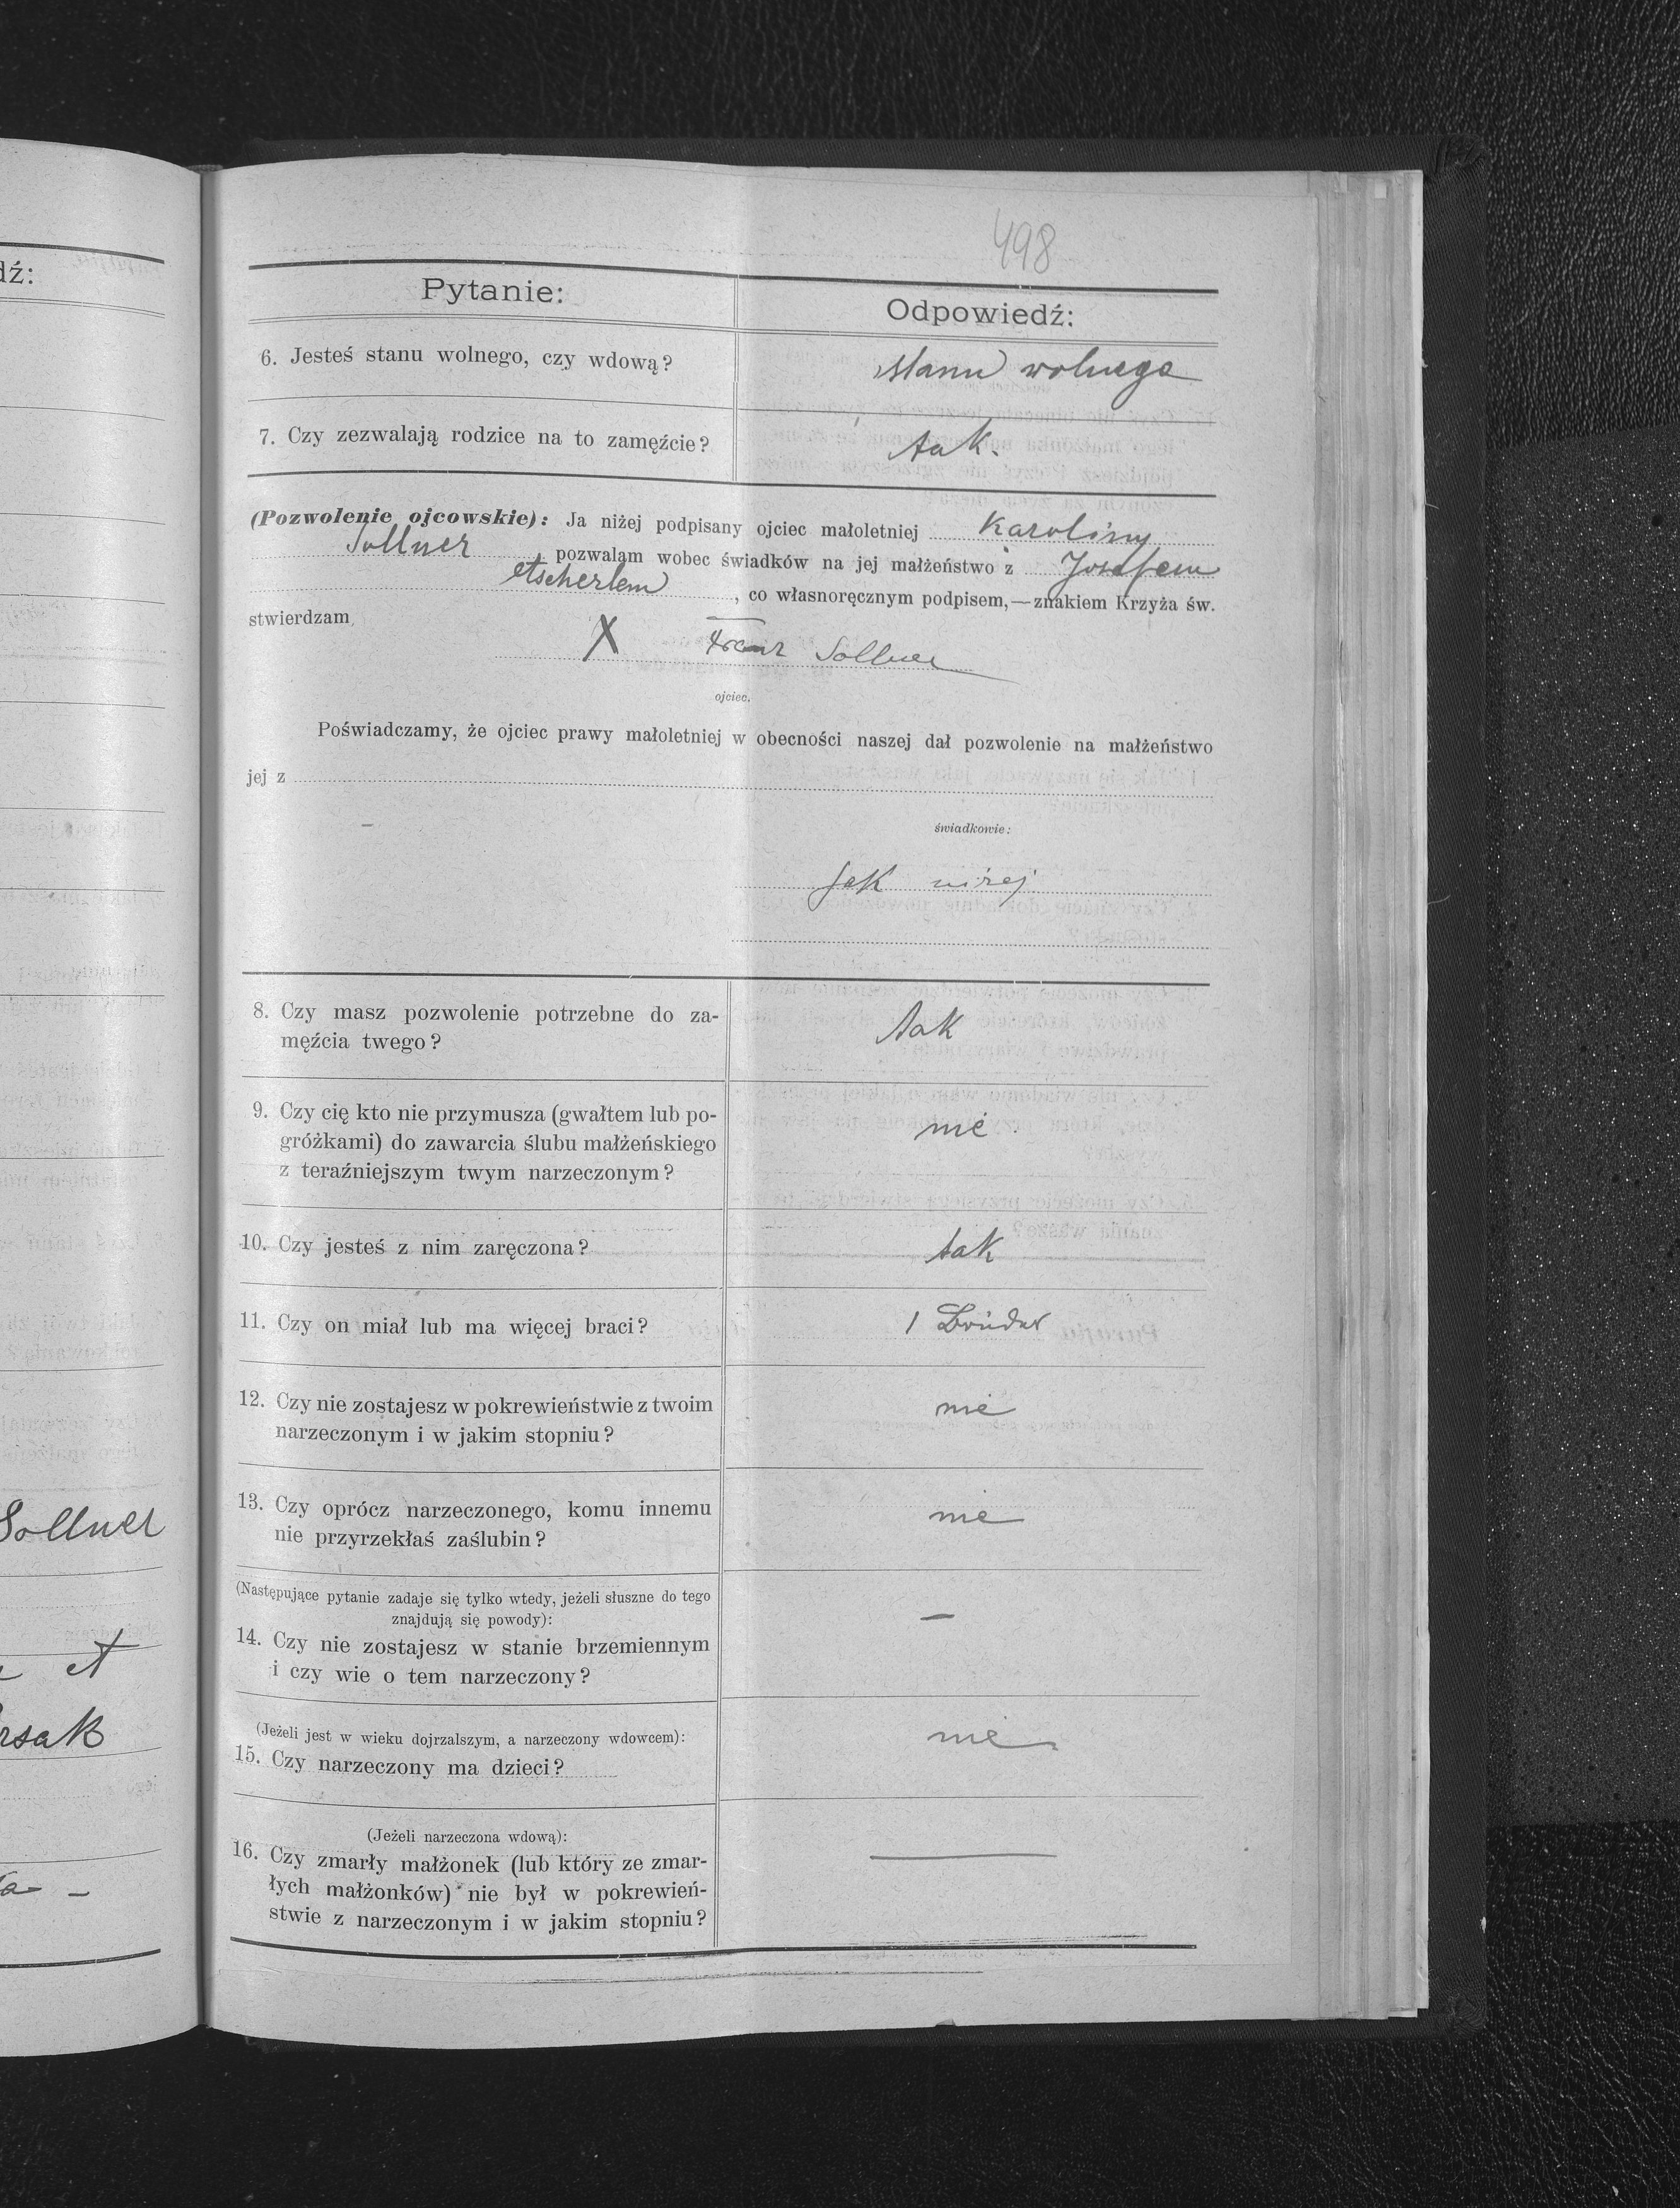 498
dź:
Pytanie:
Odpowiedź:
6. Jesteś stanu wolnego, czy wdową?
stanu wolnego
7. Czy zezwalają rodzice na to zamęźcie?
tak.
(Pozwolenie ojcowskie): Ja niżej podpisany ojciec małoletniej Karoliny
Sollner pozwalam wobec świadków na jej małżeństwo z Josefem
etscherlem, co własnoręcznym podpisem,—znakiem Krzyża św.
stwierdzam
X Franz Sollner
ojciec.
Poświadczamy, że ojciec prawy małoletniej w obecności naszej dał pozwolenie na małżeństwo
jej z
świadkowie:
jak niżej
8. Czy masz pozwolenie potrzebne do za-
męźcia twego?
tak
9. Czy cię kto nie przymusza (gwałtem lub po-
gróżkami) do zawarcia ślubu małżeńskiego
z teraźniejszym twym narzeczonym?
nie
10. Czy jesteś z nim zaręczona?
tak
11. Czy on miał lub ma więcej braci?
1 Bruder
12. Czy nie zostajesz w pokrewieństwie z twoim
narzeczonym i w jakim stopniu?
nie
13. Czy oprócz narzeczonego, komu innemu
nie przyrzekłaś zaślubin?
nie
Sollner
(Następujące pytanie zadaje się tylko wtedy, jeżeli słuszne do tego
znajdują się powody):
14. Czy nie zostajesz w stanie brzemiennym
i czy wie o tem narzeczony?
—
rsak
(Jeżeli jest w wieku dojrzalszym, a narzeczony wdowcem):
15. Czy narzeczony ma dzieci?
nie
(Jeżeli narzeczona wdową):
16. Czy zmarły małżonek (lub który ze zmar-
łych małżonków) nie był w pokrewień-
stwie z narzeczonym i w jakim stopniu?